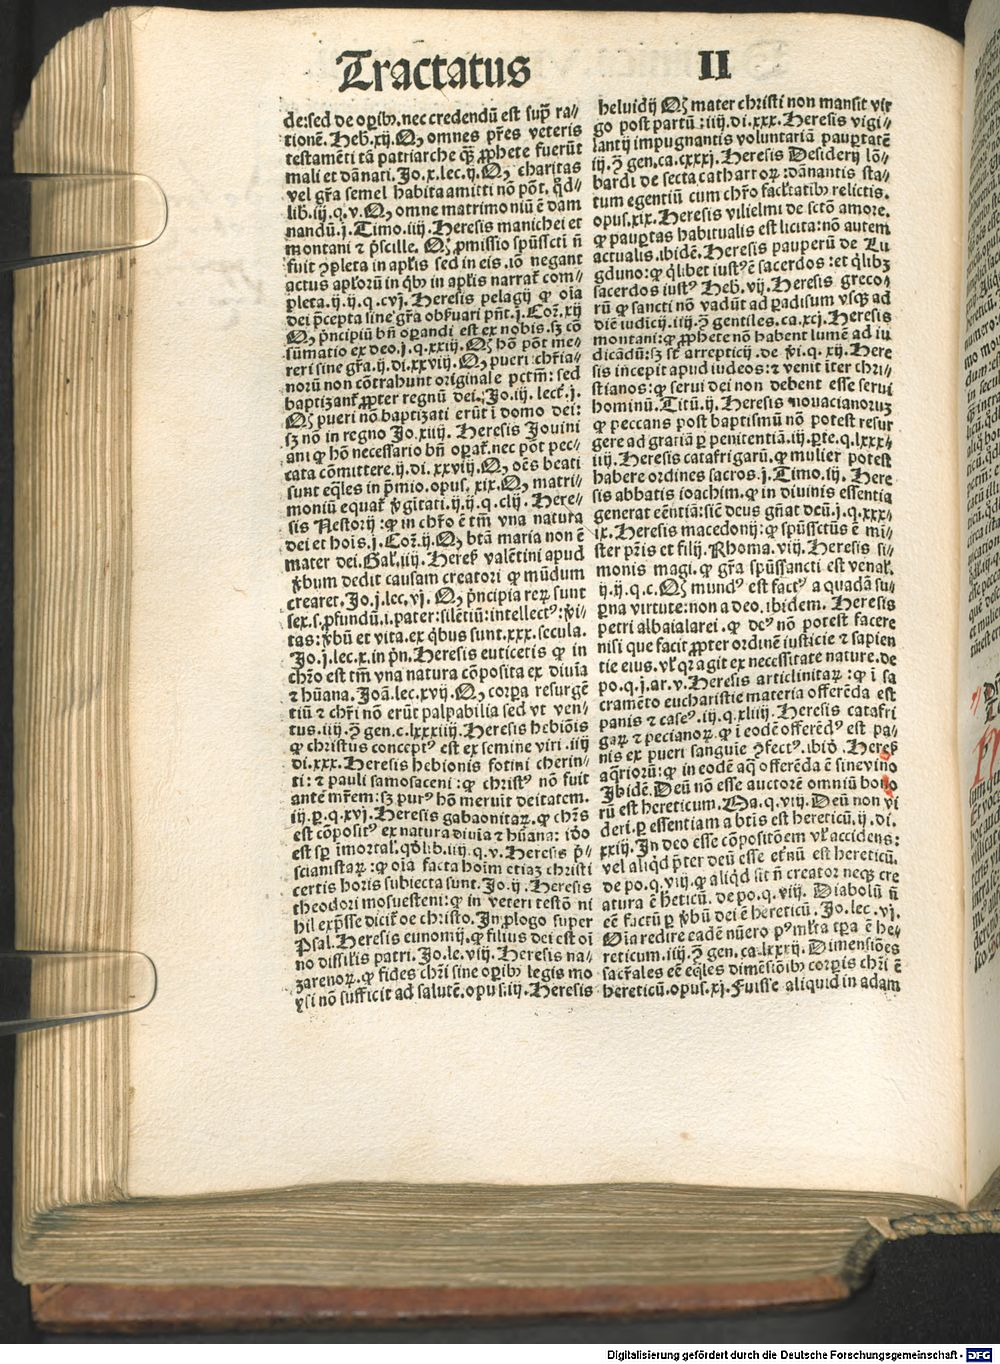 Tractatus II
de:sed de oꝑibꝰ.nec credendū est suꝑ ra⸗
tionē. Heb.xij. Qꝫ omnes pr̄es veteris
testamēti tā patriarche qꝫ ꝓphete fuerūt
mali et dānati. Jo.x.lec.ij. Qꝫ charitas
vel gr̄a semel habita amitti nō pōt. q̄d⸗
lib.iij.q.v. Qꝫ omne matrimoniū ē dam
nandū.j. Timo.iiij. Heresis manichei et
montani ⁊ p̄scille. Qꝫ ꝓmissio spūsscti n̄
fuit ꝯpleta in apl̄is sed in eis. iō negant
actus apl̄orū in qbꝰ in apl̄is narrat̄ com⸗
pleta.ij.ij.q.cvj. Heresis pelagij ꝙ oīa
dei p̄cepta sine gr̄a obẜuari pn̄t.j.Coꝝ.xij
Qꝫ p̄ncipiū bn̄ oꝑandi est ex nobis. sꝫ cō
sūmatio ex deo.j.q.xxiij. Qꝫ hō pōt me⸗
reri sine gr̄a.ij.di.xxviij. Qꝫ pueri chr̄ia⸗
norū non cōtrahunt originale pctm̄: sed
baptizant̄ ꝓpter regnū dei. Jo.iij. lect̄.j.
Qꝫ pueri nō baptizati erūt ī domo dei:
sꝫ nō in regno Jo.xiiij. Heresis Jouini
ani ꝙ hō necessario bn̄ oꝑat̄.nec pōt pec⸗
cata cōmittere.ij.di.xxviij. Qꝫ oēs beati
sunt eq̄les in p̄mio.opus. xix. Qꝫ matri⸗
moniū equat̄ v̓gitati.ij.ij.q.clij. Here⸗
sis Nestorij : ꝙ in chr̄o ē tm̄ vna natura
dei et hoīs.j. Coꝝ.ij. Qꝫ btā maria non ē
mater dei. Gal̄.iiij. Heres̄ valētini apud
v̓bum dedit causam creatori ꝙ mūdum
crearet. Jo.j.lec.vj. Qꝫ p̄ncipia reꝝ sunt
sex.s.ꝓfundū.i.pater:silētiū:intellectꝰ:v̓i⸗
tas:v̓bū et vita.ex q̄bus sunt.xxx.secula.
Jo.j.lec.x.in pn̄. Heresis euticetis ꝙ in
chr̄o est tm̄ vna natura cōposita ex diuīa
⁊ hūana. Joā.lec.xvij. Qꝫ corꝑa resurgē
tiū ⁊ chr̄i nō erūt palpabilia sed vt ven⸗
tus.iiij.ꝯ gen.c.lxxxiiij. Heresis hebiōis
ꝙ christus conceptꝰ est ex semine viri .iiij
di.xxx. Heresis hebionis fotini cherin⸗
ti: ⁊ pauli samosaceni : ꝙ christꝰ nō fuit
ante mr̄em: sꝫ purꝰ hō meruit deitatem.
iij.ꝑ.q.xvj. Heresis gabaonitaꝝ. ꝙ chr̄s
est cōpositꝰ ex natura diuīa ⁊ hūana: ideo
est sꝑ īmortal̄.qd̄lib.iiij.q.v. Heresis p̄⸗
scianistaꝝ : ꝙ oīa facta hoīm etiaꝫ christi
certis horis subiecta sunt. Jo.ij. Heresis
theodori mosuesteni: ꝙ in veteri testō ni
hil exp̄sse dicit̄ de christo. In ꝓlogo super
Psal. Heresis eunomij. ꝙ filius dei est oī
no dissil̄is patri. Jo.le.viij. Heresis na⸗
zarenoꝝ. ꝙ fides chr̄i sine oꝑibꝰ legis mo
ysi nō sufficit ad salutē.opus.iij. Heresis
heluidij Qꝫ mater christi non mansit vir
go post partū : iiij.di.xxx. Heresis vigi⸗
lantij impugnantis voluntariā pauꝑtatē
iij.ꝯ gen.ca.cxxxj. Heresis Desiderij lō⸗
bardi de secta catharroꝝ :dānantis sta⸗
tum egentiū cum chr̄o facl̄tatibꝰ relictis.
opus.xix. Heresis vilielmi de sctō amore.
ꝙ pauꝑtas habitualis est licita: nō autem
actualis.ibidē. Heresis pauperū de Lu
gduno: ꝙ q̄libet iustꝰ ē sacerdos : et q̄libꝫ
sacerdos iustꝰ Heb. vij. Heresis greco⸗
rū ꝙ sancti nō vadūt ad ꝑadisum vsqꝫ ad
diē iudicij.iiij.ꝯ gentiles.ca.xcj. Heresis
montani: ꝙ ꝓphete nō habent lumē ad iu
dicādū: sꝫ st̄ arrepticij .de v̓i.q. xij. Here
sis incepit apud iudeos: ⁊ venit iter chri⸗
stianos: ꝙ serui dei non debent esse serui
hominū. Titū.ij. Heresis nouacianoruꝫ
ꝙ peccans post baptismū nō potest resur
gere ad gratiā ꝑ penitentiā.iij.ꝑte.q.lxxx⸗
iiij. Heresis catafrigarū. ꝙ mulier potest
habere ordines sacros.j. Timo.iij. Here
sis abbatis ioachim. ꝙ in diuinis essentia
generat eēntiā: sic̄ deus gn̄at deū.j.q.xxx⸗
ix. Heresis macedonij: ꝙ spūssctūs ē mi⸗
ster pr̄is et filij. Rhoma. viij. Heresis si⸗
monis magi. ꝙ gr̄a spūssancti est venal̄.
ij.ij.q.c. Qꝫ mundꝰ est factꝰ a quadā su⸗
ꝑna virtute: non a deo.ibidem. Heresis
petri albaialarei . ꝙ deꝰ nō potest facere
nisi que facit ꝓpter ordinē iusticie ⁊ sapien
tie eius.vl̓ qꝛ agit ex necessitate nature.de
po.q.j.ar.v. Heresis articlinitaꝝ : ꝙ ī sa
cramēto eucharistie materia offerēda est
panis ⁊ caseꝰ.iij.q.xliiij. Heresis catafri
gaꝝ ⁊ pecianoꝝ. ꝙ ī eodē offerēdꝰ est pa⸗
nis ex pueri sanguīe ꝯfectꝰ.ibid̄. Heres̄
aq̄rioꝝ: ꝙ in eodē aq̄ offerēda ē sine vino
Ibidē. Deū nō esse auctorē omniū bono
rū est hereticum. Ma.q.viij. Deū non vi
deri.ꝑ essentiam a btīs est hereticū.ij.di.
xxiij. In deo esse cōpositōem vl̓ accidens:
vel aliq̄d p̄ter deū esse et̄nū est hereticū.
de po.q.viij. ꝙ aliq̄d sit n̄ creator neqꝫ cre
atura ē h̄eticū. de po.q. viij. Diabolū n̄
eē factū ꝑ v̓bū dei ē h̄ereticū. Jo.lec.vj.
Oīa redire eadē nūero pꝰ ml̄ta tꝑa ē he⸗
reticum.iiij.ꝯ gen.ca.lxxxij. Dimensiōes
sacr̄ales eē eq̄les dimēsiōibꝰ corꝑis chr̄i ē
hereticū.opus.xj. Fuisse aliquid in adam
Digitalisierung gefördert durch die Deutsche Forschungsgemeinschaft - DFG